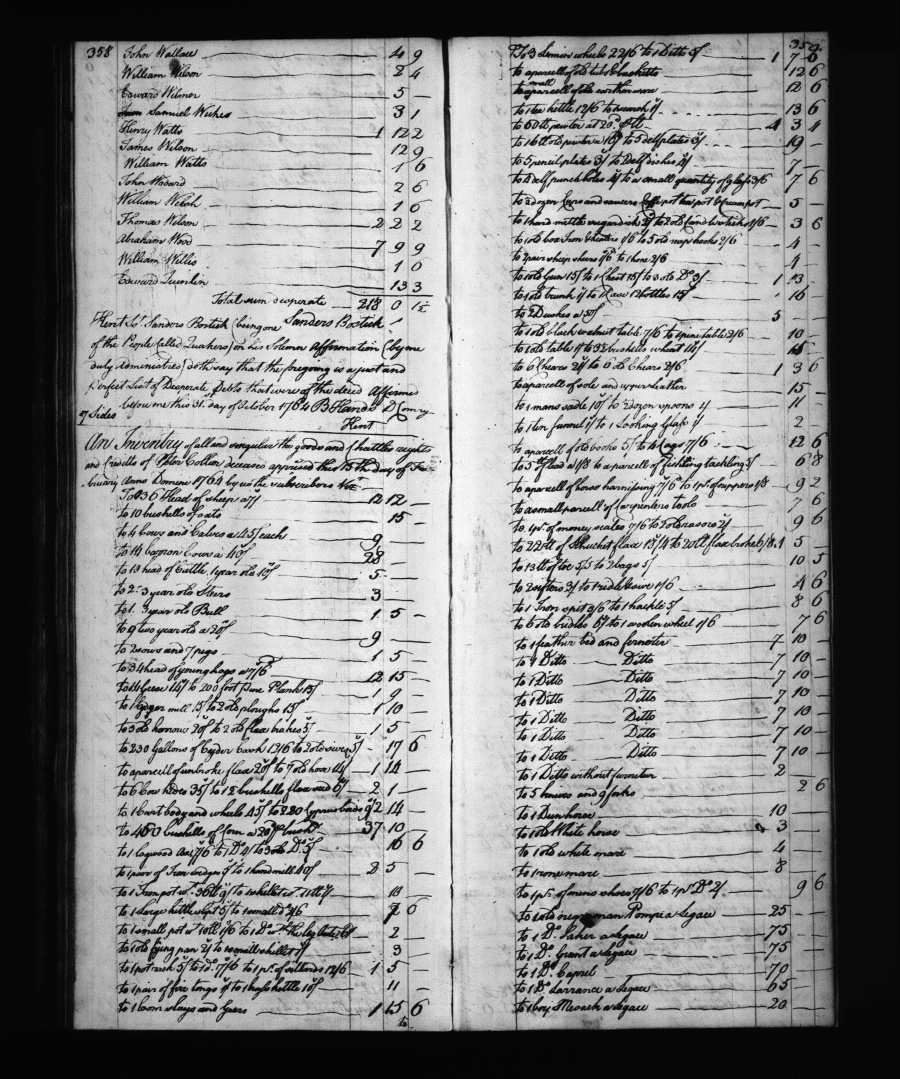 358
John Wallace 4 9
William Wilson 2 4
Edward Wilmer 5 —
Samuel Wickes 3 1
Henry Watts 1 12 2
James Wilson 12 9
William Watts 1 6
John Woodard 2 6
William Welsh 1 6
Thomas Wilson 2 2 2
Abraham Wood 7 9 9
William Willis 1 0
Edward Quinlin 13 3
Total sum desperate 218 0 1½
Kent Sct Sanders Bostick (being one Sanders Bostick
of the People called Quakers) on his Solemn Affirmation (by me
duly Administred) doth say that the foregoing is a just and
Perfect List of Desperate Debts that were of the deced Affirmed
before me this 31st day of October 1764 B Hands D Comry
7 Sides Kent
An Inventry of all and singular the goods and Chattles rights
and Credits of Peter Collier deceased apprised this 15th day of Fe
bruary Anno Domini 1764 by us the subscribers Viz
To 36 Head of sheep a 7/ 12 12 —
to 10 bushells of oats 15 —
to 4 Cows and Calves a 45/ each 9 — —
to 14 barron Cows a 40/ 28 — —
to 13 head of Cattle 1 year old 5 —
to 2 3 year old Steers 3 — —
to 1 3 year old Bull 1 5 —
to 9 two year old a 20/ 9 — —
to 2 sows and 7 pigs 1 5 —
to 34 head of young hogs a 7/6 12 15 —
to 14 Geese 14/ to 200 foot pine Plank 15/ 1 9 —
to 1 Cyder mill 15/ to 2 old ploughs 15/ 1 10 —
to 3 old harrows 20/ to 2 old flax brakes 5/ 1 5 —
to 230 Gallons of Cyder Cask 12/6 to 2 old sives 5/ 17 6
to a parcell of unbroke flax 20/ to 7 old hoes 14/ 1 14 —
to 6 Cow hides 35/ to 1½ bushells flax seed 6/ 2 1 —
to 1 Cart body and wheels 45/ to 220 Cyprus 2 14 —
to 450 bushells of Corn a 20d bush 37 10 —
to 1 logwood Axe 7/6 to 1 Do 4/ to 3 old Do 5/ 16 6
to 1 pair of Iron wedges 5/ to 1 handmill 40/ 2 5 —
to 1 Iron pot wt 36lb 9/ to 1 skillet wt 11lb 10 —
to 1 Large kettle 5/ to 1 small Do 2/6 7 6
to 1 small pot wt 10lb 1/6 to 1 Do 2 —
to 1 old frying pan 2/ to 1 small skillet 1/ 3 —
to 1 pot rack 5/ to 1 Do 7/6 to 1 pr of stillards 12/6 1 5 —
to 1 pair of fire tongs 1/ to 1 brass kettle 10/ 11 —
to 1 Loom slays and Gears 1 15 6
to
359
To 3 Linnin wheels 22/6 to 1 Ditto 5/ 1 7 6
to a parcell of old tubs & bucketts 12 6
to a small parcell of old earthenware 12 6
to 1 tea kettle 12/6 to 1 1/ 13 6
to 50lb pewter at 20d 4 3 4
to 16lb old pewter a to 5 delf plates 5/ 19 —
to 5 pencil plates 3/ to Delf dishes 4/ 7 —
to 4 delf punch boles 4/ to a small quantity of glass 3/6 7 6
to 2 dozen Cups and saucers Coffe pot tea pot & Cream pot 5 —
to 1 hard mettle sugar dish 2/ to 2 old Candlesticks 1/6 3 6
to 1 old box Iron & heaters 1/6 to 5 old reap hooks 2/6 4 —
to 2 pair sheep shears 1/6 to 1 hone 2/6 4 —
to 1 old Gun 15/ to 1 Chest 15/ to 3 old Do 3/ 1 13 —
to 1 old trunk 1/ to 1 Case 12 bottles 15/ 16 —
to 2 Dushes a 50/ 5 — —
to 1 old black walnut table 7/6 to 1 pine table 2/6 10 —
to 1 old table 1/ to 3½ bushells wheat 14/ 15 —
to 6 Chears 21/ to 6 old Chears 2/6 1 3 6
to a parcell of sole and upper Leather 15 —
to 1 mans sadle 10/ to 2 dozen spoons 1/ 11 —
to 1 tin funnel 1/ to 1 Looking Glass 1/ 2 —
to a parcell of old books 5/ to 4 Cags 7/6 12 6
to 5lb of lead a 1/8 to a parcell of fishing tackling 5/ 6 8
to a parcell of horse harnissing 7/6 to 1 pr of nippers 1/8 9 2
to a small parcell of Carpenters tools 7 6
to 1 pr of money scales 7/6 to 2 old rasors 2/ 9 6
to 22lb of hatchel flax 18/4 to 20lb flax broke 6/8 1 5 —
to 13lb of toe 5/5 to 2 bags 5/ 10 5
to 2 sifters 3/ to 1 ridle sive 1/6 4 6
to 1 Iron spit 3/6 to 1 hackle 5/ 8 6
to 6 old bridles 6/ to 1 woolen wheel 1/6 7 6
to 1 feather bed and furniter 7 10 —
to 1 Ditto Ditto 7 10 —
to 1 Ditto Ditto 7 10 —
to 1 Ditto Ditto 7 10 —
to 1 Ditto Ditto 7 10 —
to 1 Ditto Ditto 7 10 —
to 1 Ditto Ditto 7 10 —
to 1 Ditto without furniter 2 — —
to 5 knives and 9 forks 2 6
to 1 Dun horse 10 — —
to 1 old White horse 3 — —
to 1 old white mare 4 — —
to 1 rone mare 8 — —
to 1 pr of mens shoes 7/6 to 1 pr Do 2/ 9 6
to 1 old negro man Pompi a Legace 25 — —
to 1 Do Saher a Legace 75 — —
to 1 Do Grant a Legace 75 — —
to 1 Do Capril 70 — —
to 1 Do Sarrance a Legace 65 — —
to 1 boy Meoach a Legace 20 — —